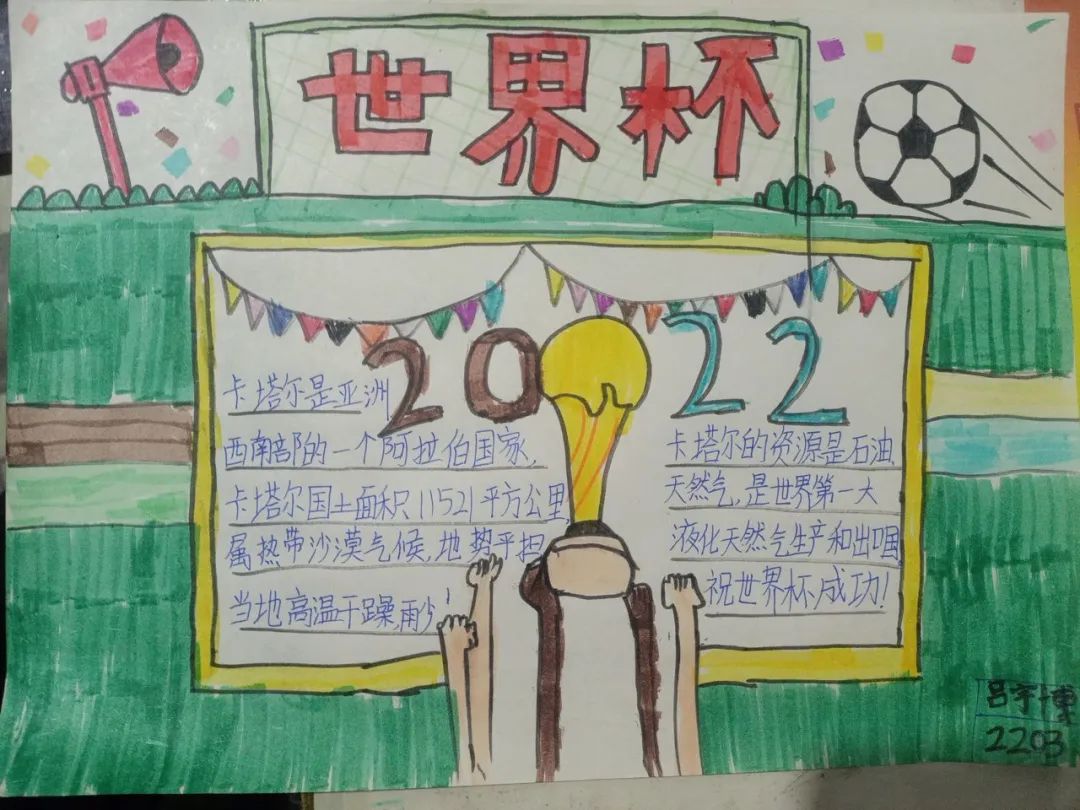 世界杯
2022
卡塔尔是亚洲
西南部的一个阿拉伯国家,
卡塔尔国土面积11521平方公里,
属热带沙漠气候,地势平坦
当地高温干躁,雨少!
卡塔尔的资源是石油
天然气,是世界第一大
液化天然气生产和出口国
祝世界杯成功!
吕宇博
2203